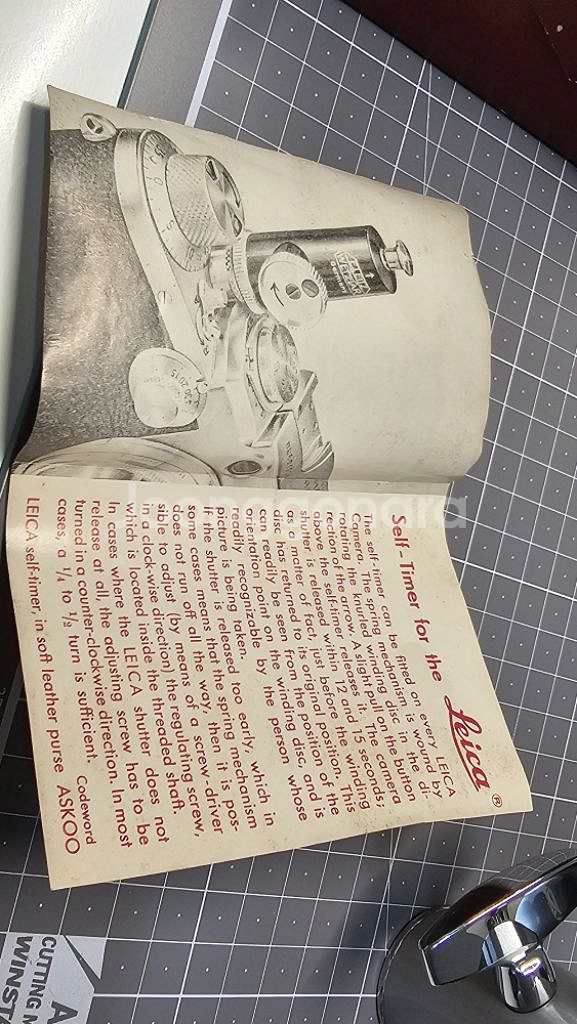 Self-Timer for the Leica ®
The self-timer can be fitted on every LEICA
Camera. The spring mechanism is wound by
rotating the knurled winding disc in the di-
rection of the arrow. A slight pull on the button
above the self-timer releases it. The camera
shutter is released within 12 and 15 seconds;
as a matter of fact, just before the winding
disc has returned to its original position. This
can readily be seen from the position of the
orientation point on the winding disc, and is
readily recognizable by the person whose
picture is being taken.
If the shutter is released too early, which in
some cases means that the spring mechanism
does not run off all the way, then it is pos-
sible to adjust (by means of a screw-driver
in a clock-wise direction) the regulating screw,
which is located inside the threaded shaft.
In cases where the LEICA shutter does not
release at all, the adjusting screw has to be
turned in a counter-clockwise direction. In most
cases, a 1/4 to 1/8 turn is sufficient.
Codeword
LEICA self-timer, in soft leather purse ASKOO
Joonggonara
CUTTING
WINST